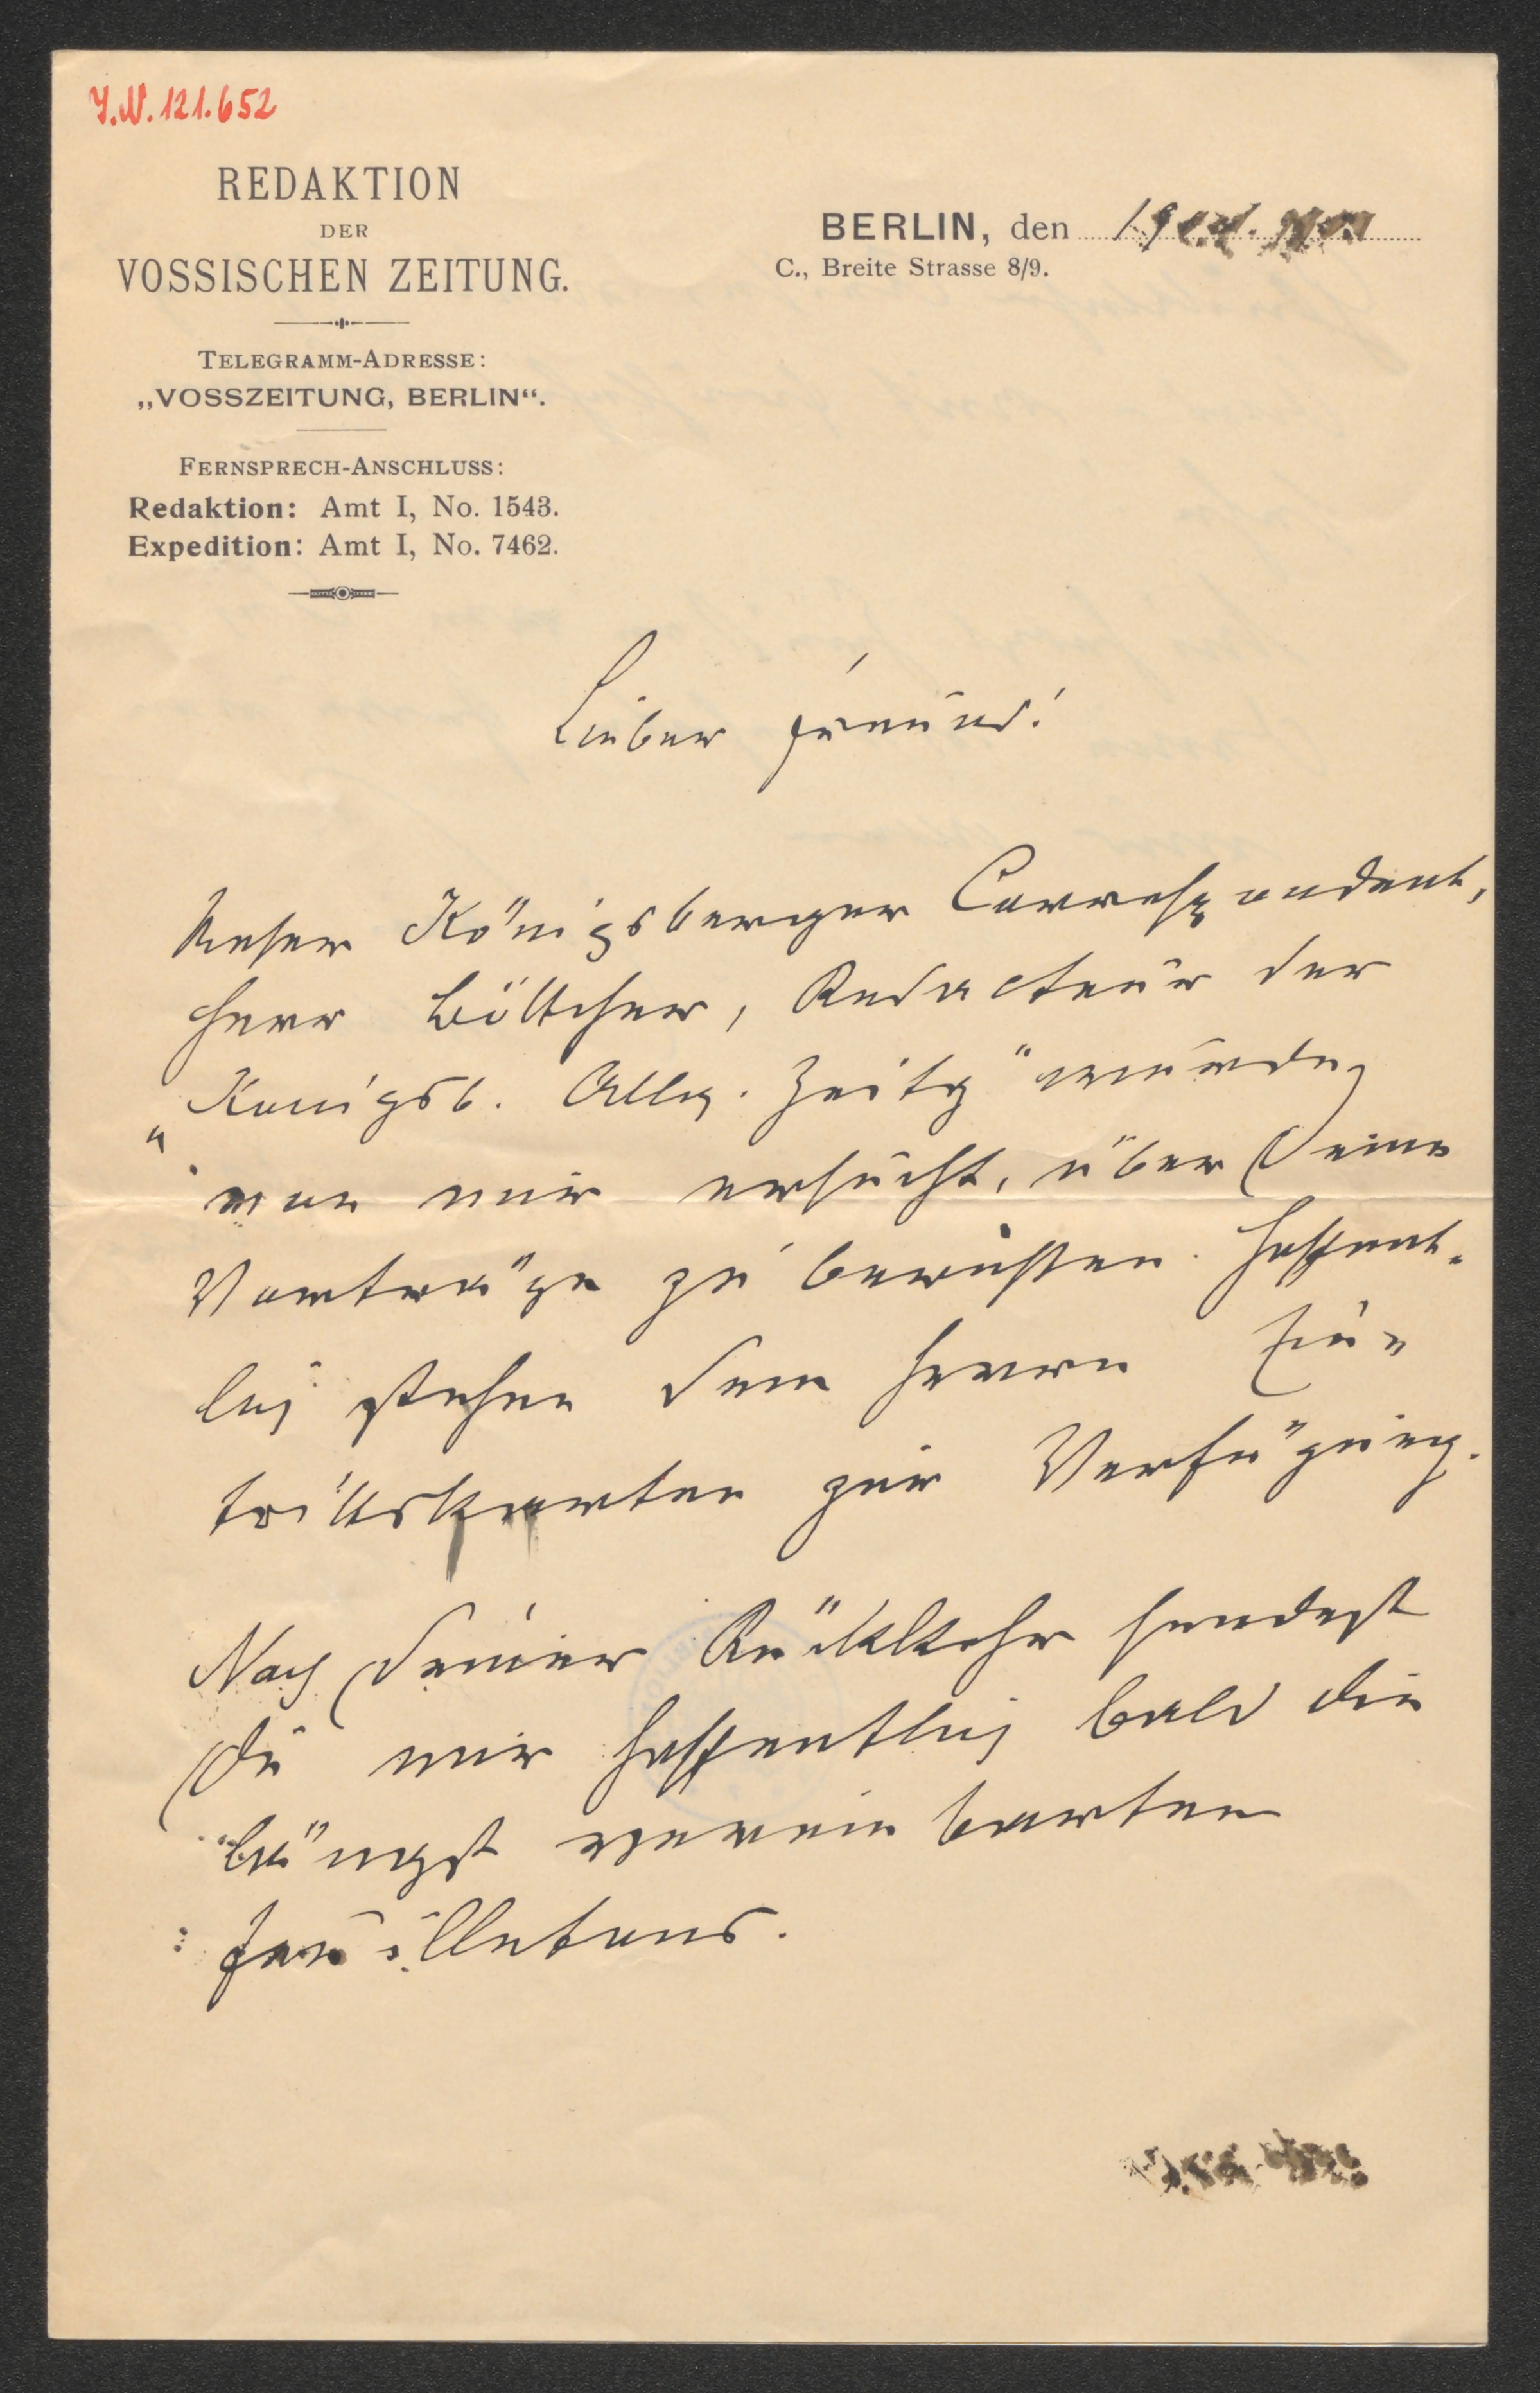 I.N. 121.652
REDAKTION
DER
VOSSISCHEN ZEITUNG.
TELEGRAMM-ADRESSE:
„VOSSZEITUNG, BERLIN“.
FERNSPRECH-ANSCHLUSS:
Redaktion: Amt I, No. 1543.
Expedition: Amt I, No. 7462.
BERLIN, den
C., Breite Strasse 8/9.
Lieber Freund!
Unser Königsberger Correspondent,
Herr Böttcher, Redacteur der
„Königsb. Allg. Zeitg“ wurde
von mir ersucht, über Deine
Vorträge zu berichten. Hoffent-
lich stehen dem Herrn Ein-
trittskarten zur Verfügung.
Nach Deiner Rückkehr sendest
Du mir hoffentlich bald die
längst vereinbarten
Feuilletons.